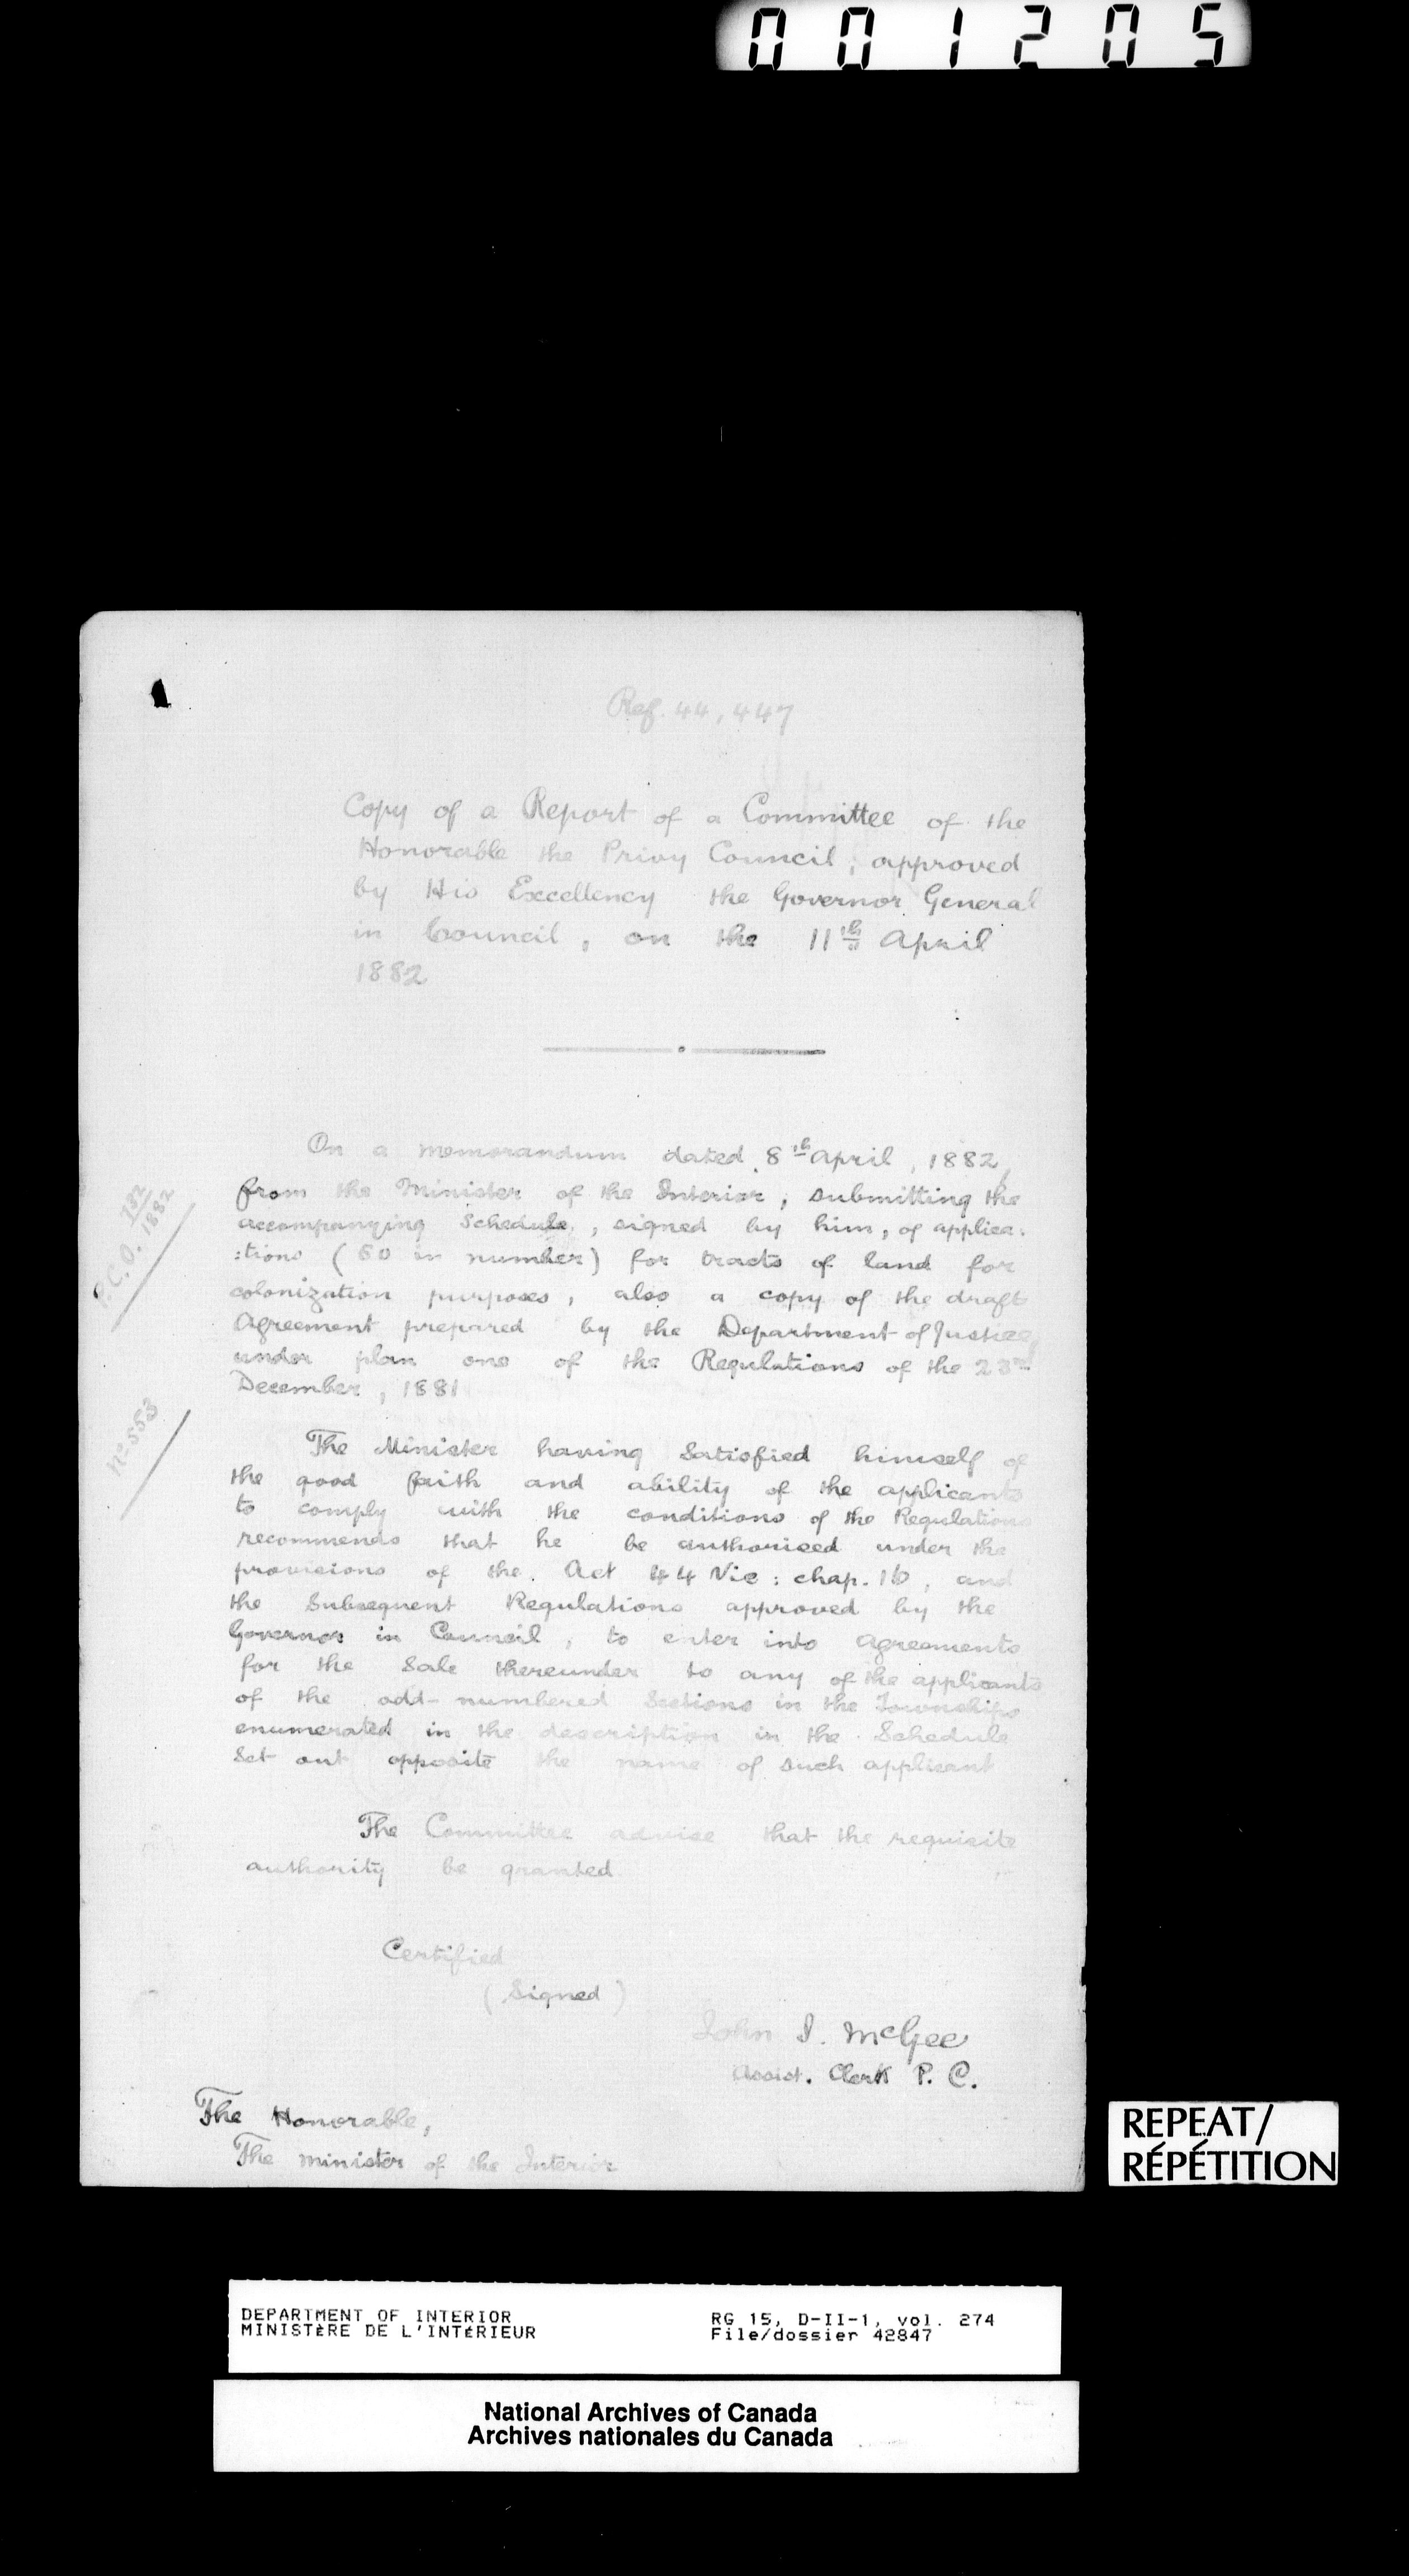 001205
Ref. 44,447
Copy of a Report of a Committee of the
Honorable the Privy Council, approved
by His Excellency the Governor General
in Council, on the 11th April
1882
On a memorandum dated 8th April, 1882,
from the Minister of the Interior, submitting the
accompanying Schedule, signed by him, of applica:
:tions (50 in number) for tracts of land for
colonization purposes, also a copy of the draft
Agreement prepared by the Department of Justice
under plan one of the Regulations of the 23rd
December, 1881
P.C.O. 1882
No. 553
The Minister having Satisfied himself of
the good faith and ability of the applicants
to comply with the conditions of the Regulations
recommends that he be authorised under the
provisions of the Act 44 Vic: chap. 16, and
the Subsequent Regulations approved by the
Governor in Council, to enter into Agreements
for the Sale thereunder to any of the applicants
of the odd-numbered Sections in the Townships
enumerated in the description in the Schedule
Set out opposite the name of such applicant
The Committee advise that the requisite
authority be granted
Certified
(Signed)
John J. McGee
Assist. Clerk P. C.
The Honorable,
The minister of the Interior
REPEAT/
RÉPÉTITION
DEPARTMENT OF INTERIOR RG 15, D-II-1, vol. 274
MINISTÈRE DE L'INTÉRIEUR File/dossier 42847
National Archives of Canada
Archives nationales du Canada